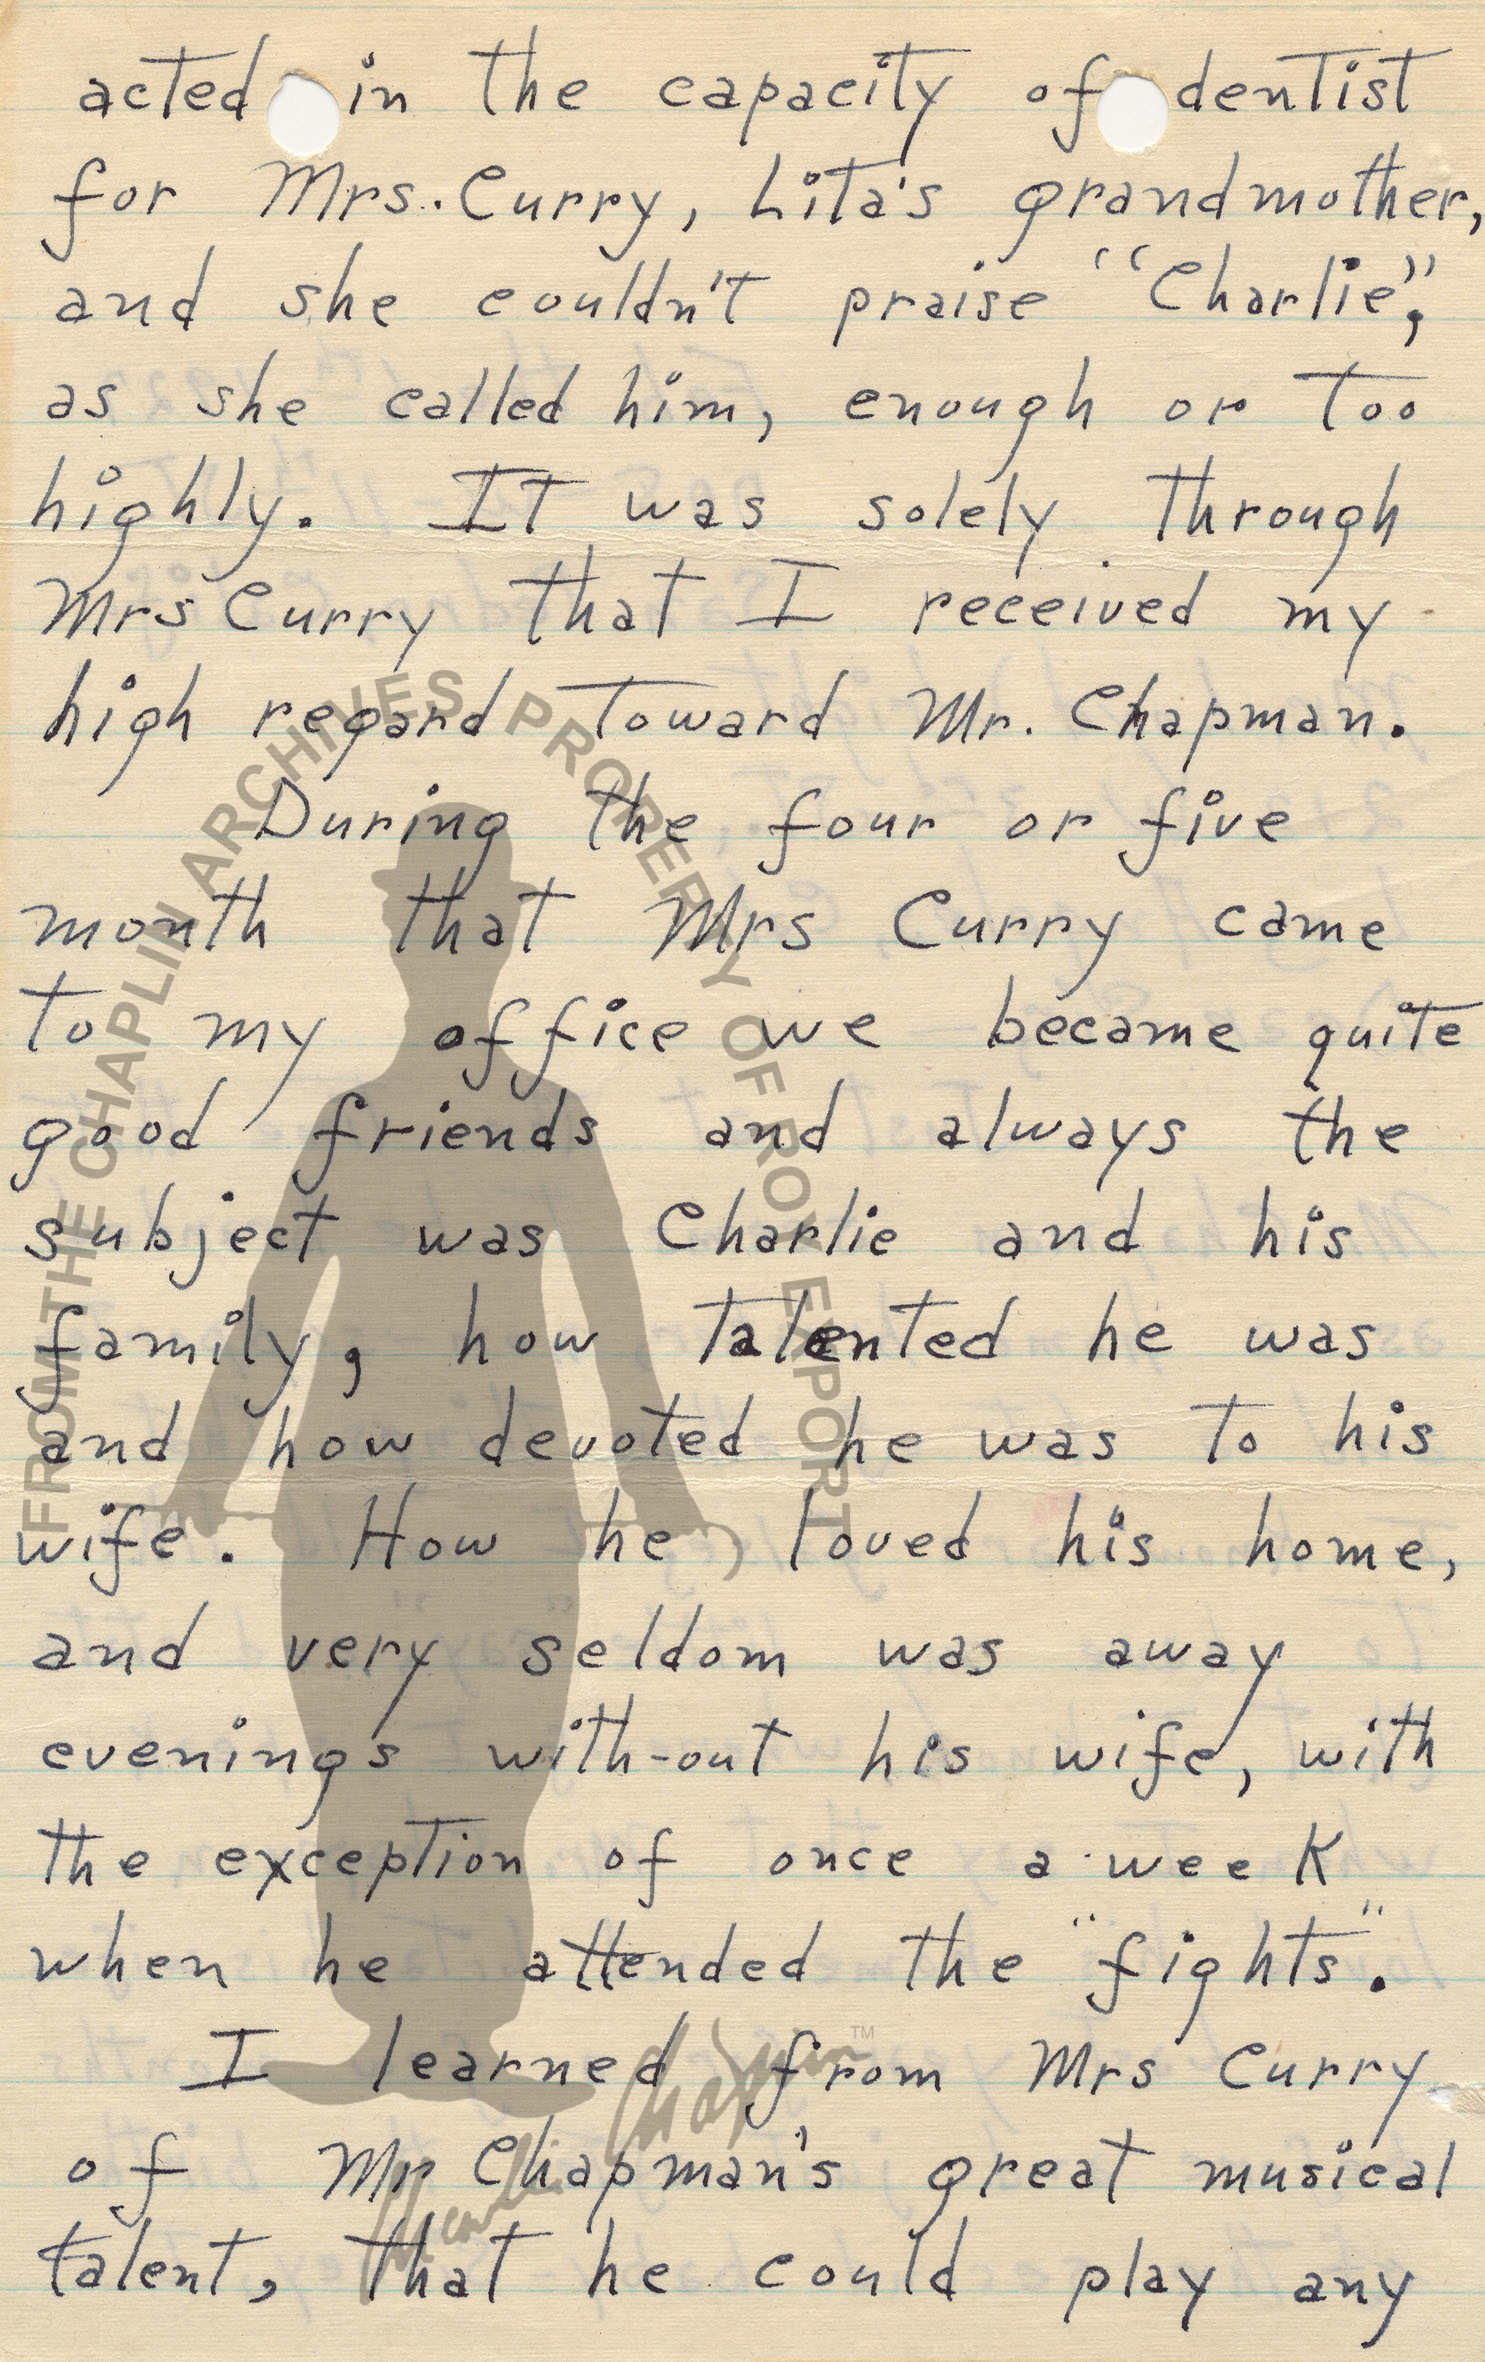 acted in the capacity of dentist
for Mrs. Curry, Lita's grandmother,
and she couldn't praise "Charlie",
as she called him, enough or too
highly. It was solely through
Mrs Curry that I received my
high regard toward Mr. Chapman.
During the four or five
month that Mrs Curry came
to my office we became quite
good friends and always the
subject was Charlie and his
family, how talented he was
and how devoted he was to his
wife. How he loved his home,
and very seldom was away
evenings with-out his wife, with
the exception of once a week
when he attended the "fights".
I learned from Mrs Curry
of Mr Chapman's great musical
talent, that he could play any
FROM THE CHAPLIN ARCHIVES PROPERTY OF ROY EXPORT
Charles Chaplin™